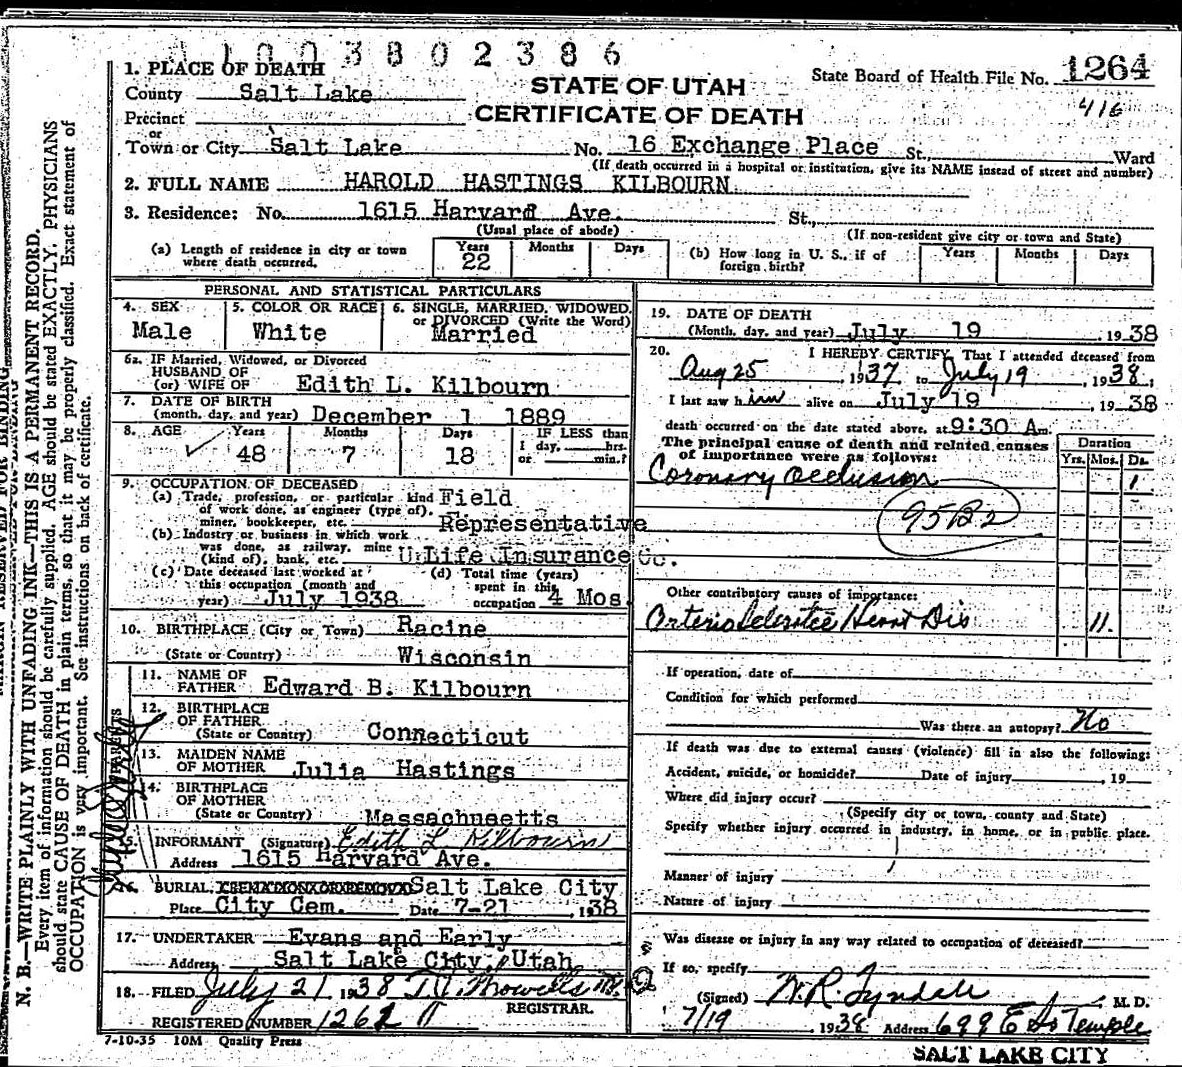 1003802386
1. PLACE OF DEATH
County Salt Lake
STATE OF UTAH
CERTIFICATE OF DEATH
State Board of Health File No. 1264
416
Precinct
or
Town or City Salt Lake No. 16 Exchange Place St., Ward
(If death occurred in a hospital or institution, give its NAME instead of street and number)
2. FULL NAME HAROLD HASTINGS KILBOURN
3. Residence: No. 1615 Harvard Ave. St.,
(Usual place of abode) (If non-resident give city or town and State)
(a) Length of residence in city or town where death occurred. Years 22 Months Days
(b) How long in U. S., if of foreign birth? Years Months Days
PERSONAL AND STATISTICAL PARTICULARS
4. SEX 5. COLOR OR RACE 6. SINGLE, MARRIED, WIDOWED, or DIVORCED (Write the Word)
Male White Married
6a. IF Married, Widowed, or Divorced
HUSBAND OF
(or) WIFE OF Edith L. Kilbourn
7. DATE OF BIRTH
(month, day, and year) December 1 1889
8. AGE Years Months Days IF LESS than
1 day, hrs.
or min.?
48 7 18
9. OCCUPATION OF DECEASED
(a) Trade, profession, or particular kind Field
of work done, as engineer (type of),
miner, bookkeeper, etc. Representative
(b) Industry or business in which work
was done, as railway, mine
(kind of), bank, etc. U Life Insurance Co.
(c) Date deceased last worked at
this occupation (month and
year) July 1938
(d) Total time (years)
spent in this
occupation 4 Mos.
10. BIRTHPLACE (City or Town) Racine
(State or Country) Wisconsin
11. NAME OF
FATHER Edward B. Kilbourn
12. BIRTHPLACE
OF FATHER
(State or Country) Connecticut
13. MAIDEN NAME
OF MOTHER Julia Hastings
14. BIRTHPLACE
OF MOTHER
(State or Country) Massachusetts
PARENTS
INFORMANT (Signature) Edith L. Kilbourn
Address 1615 Harvard Ave.
16. BURIAL, CREMATION OR REMOVAL Salt Lake City
Place City Cem. Date 7-21, 1938
17. UNDERTAKER Evans and Early
Address Salt Lake City, Utah
18. FILED July 21 1938
REGISTRAR.
REGISTERED NUMBER 1262
7-10-35 10M Quality Press
19. DATE OF DEATH
(Month, day, and year) July 19, 1938
20. I HEREBY CERTIFY, That I attended deceased from
Aug 25, 1937 to July 19, 1938,
I last saw him alive on July 19, 1938
death occurred on the date stated above, at 9:30 Am.
The principal cause of death and related causes
of importance were as follows:
Duration
Yrs. Mos. Ds.
Coronary Occlusion 1
95B2
Other contributory causes of importance:
Arteriosclerotic Heart Dis 11.
If operation, date of
Condition for which performed
Was there an autopsy? No
If death was due to external causes (violence) fill in also the following:
Accident, suicide, or homicide? Date of injury, 19
Where did injury occur?
(Specify city or town, county and State)
Specify whether injury occurred in industry, in home, or in public place.
Manner of injury
Nature of injury
Was disease or injury in any way related to occupation of deceased?
If so, specify
(Signed) W. R. Tyndale M. D.
7/19, 1938 Address 699 E So Temple
SALT LAKE CITY
N. B.—WRITE PLAINLY WITH UNFADING INK—THIS IS A PERMANENT RECORD.
Every item of information should be carefully supplied. AGE should be stated EXACTLY. PHYSICIANS
should state CAUSE OF DEATH in plain terms, so that it may be properly classified. Exact statement of
OCCUPATION is very important. See instructions on back of certificate.